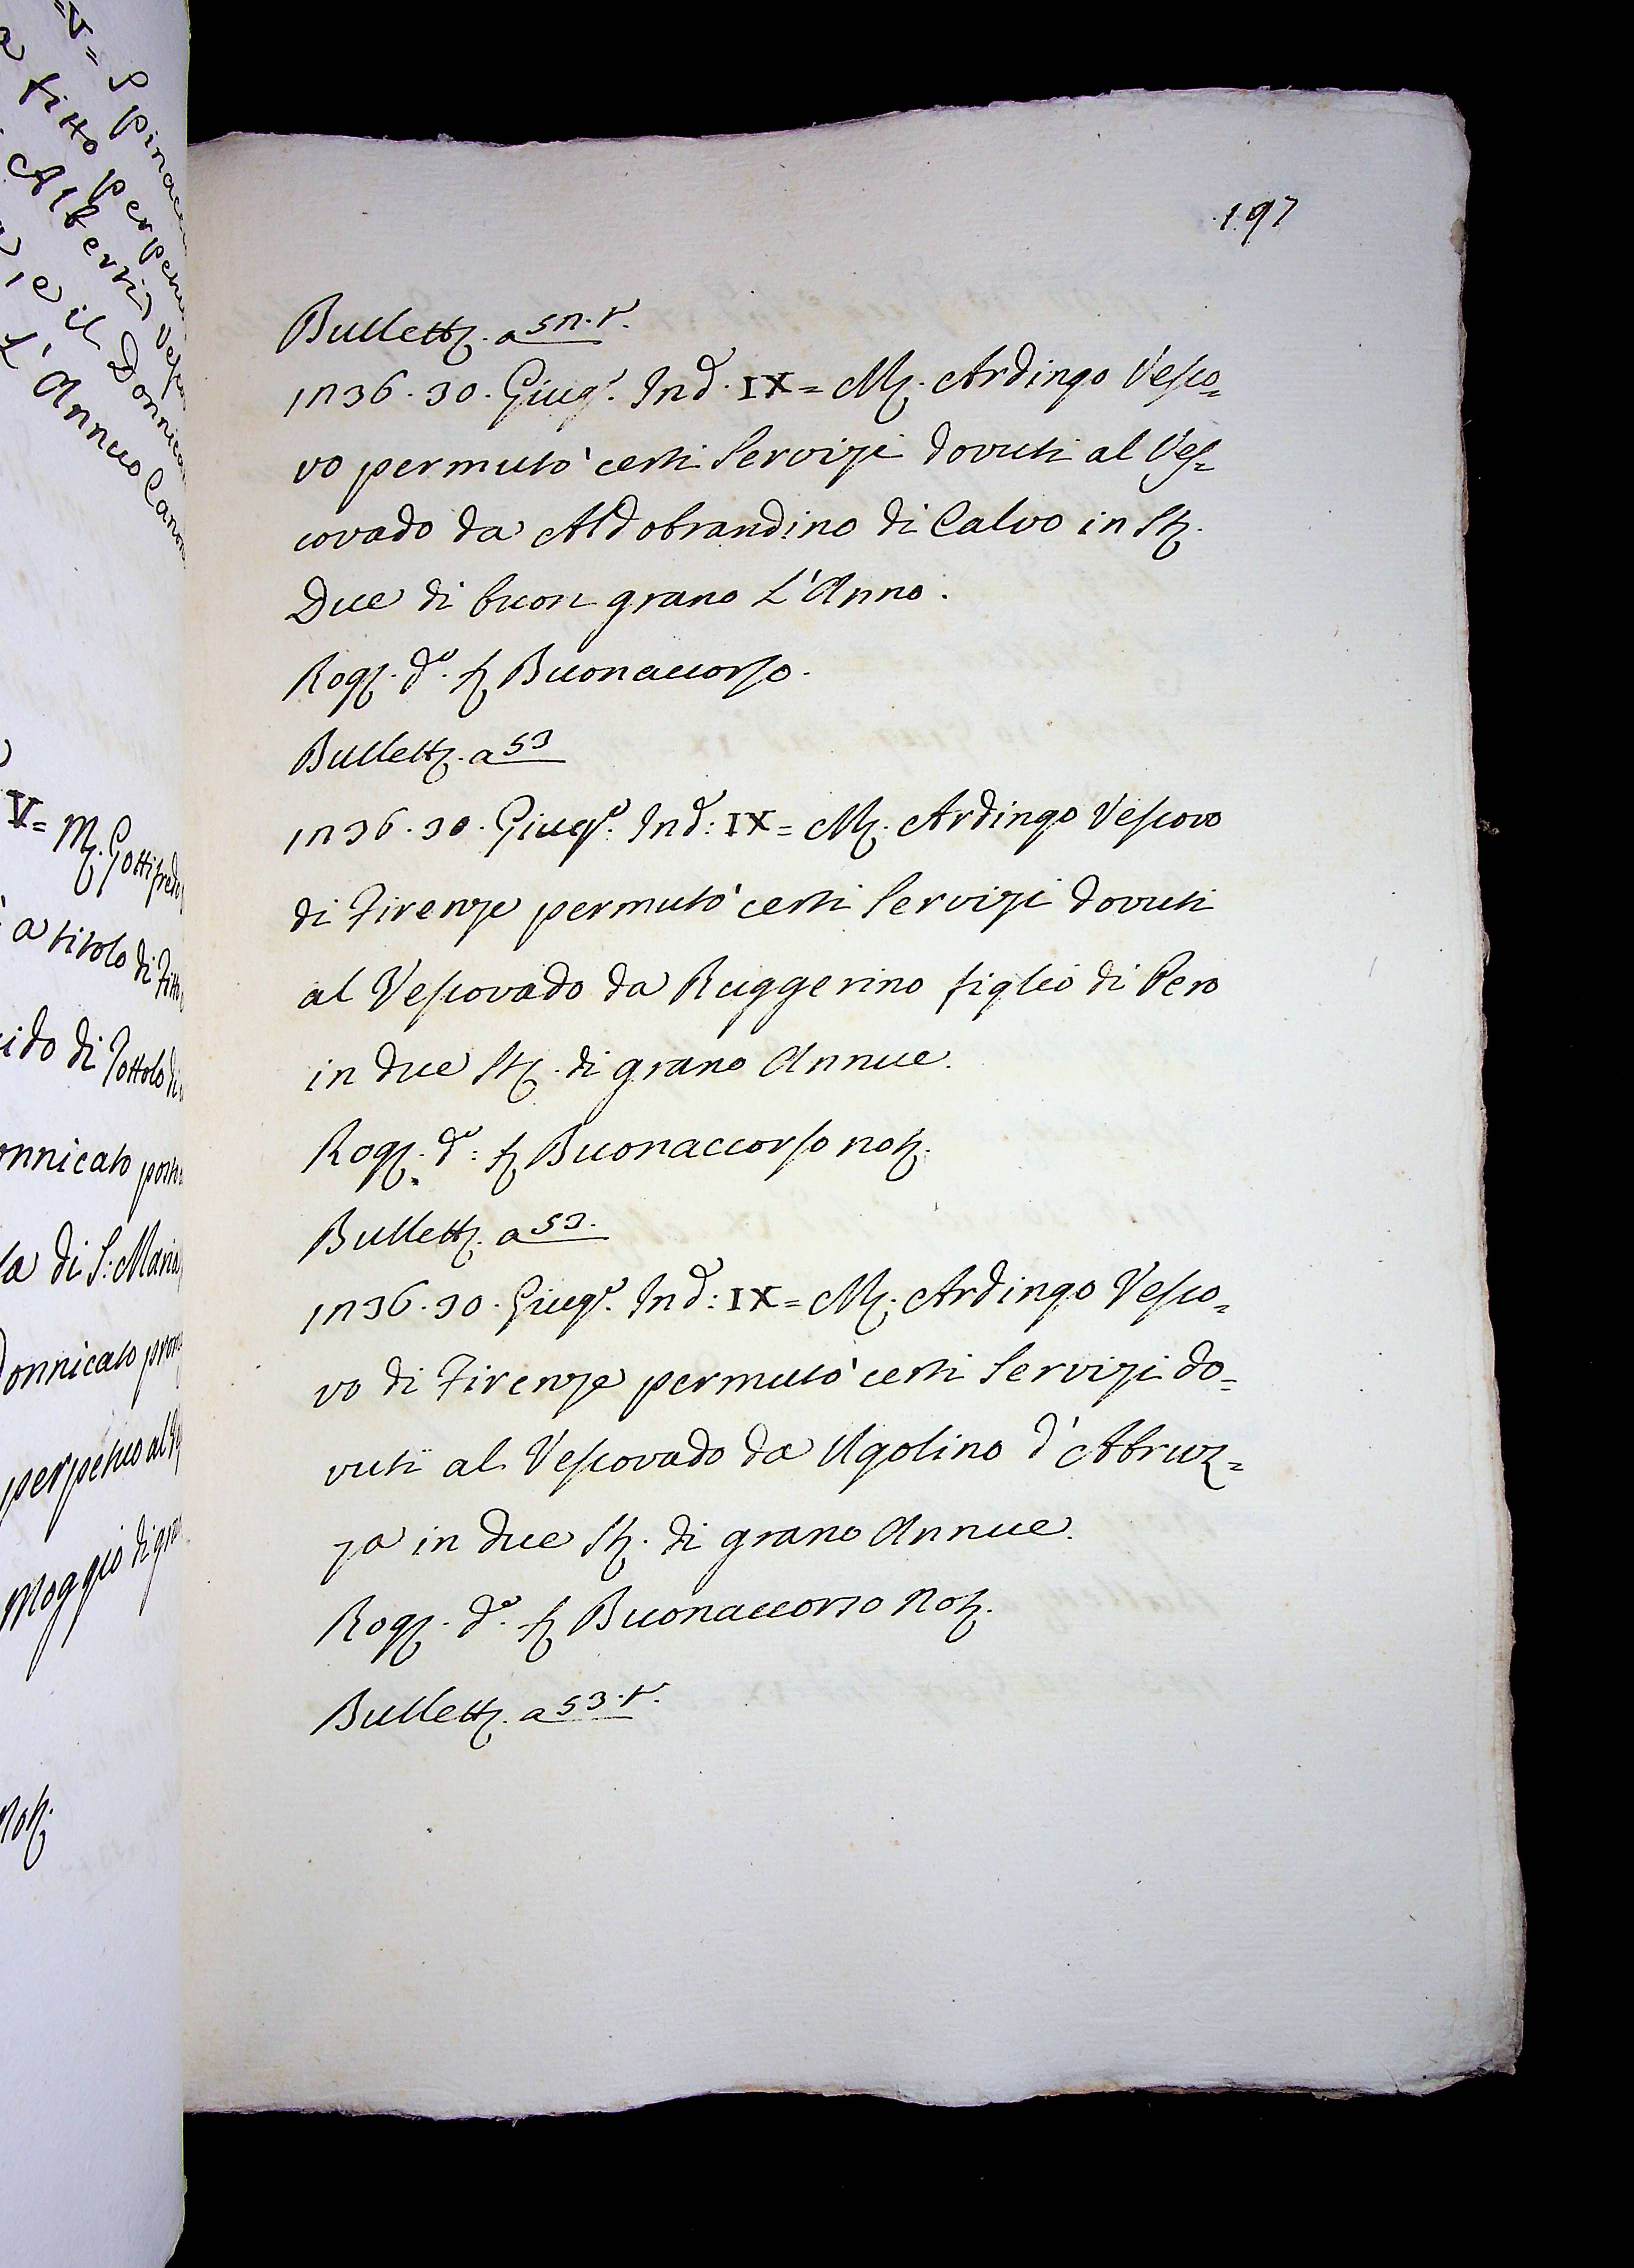 fitto perpe
Alberti Vesc
e il Donnica
L'Annuo Cano
V= M. Gottifredo
a titolo di Fitto
ido di Tottolo di
onnicato posto
la di S. Maria
Donnicato
perpetuo al
Moggio di gra
Not.
197
Bullett. a 52.t.
1236. 30. Giug.o Ind. IX= M. Ardingo Vesco=
vo permutò certi Servizi dovuti al Ves=
covado da Aldobrandino di Calvo in St.
Due di buon grano L'Anno.
Rog. d.o S. Buonaccorso.
Bullett. a 53
1236. 30. Giug.o Ind: IX= M. Ardingo Vescovo
di Firenze permutò certi Servizi dovuti
al Vescovado da Ruggerino figlio di Pero
in due St. di grano Annue.
Rog. d.o: S. Buonaccorso not.
Bullett. a 53.
1236. 30. Giug.o Ind: IX= M. Ardingo Vesco=
vo di Firenze permutò certi Servizi do=
vuti al Vescovado da Ugolino d'Abruz=
za in due St. di grano Annue.
Rog. d.o S. Buonaccorso Not.
Bullett. a 53.t.